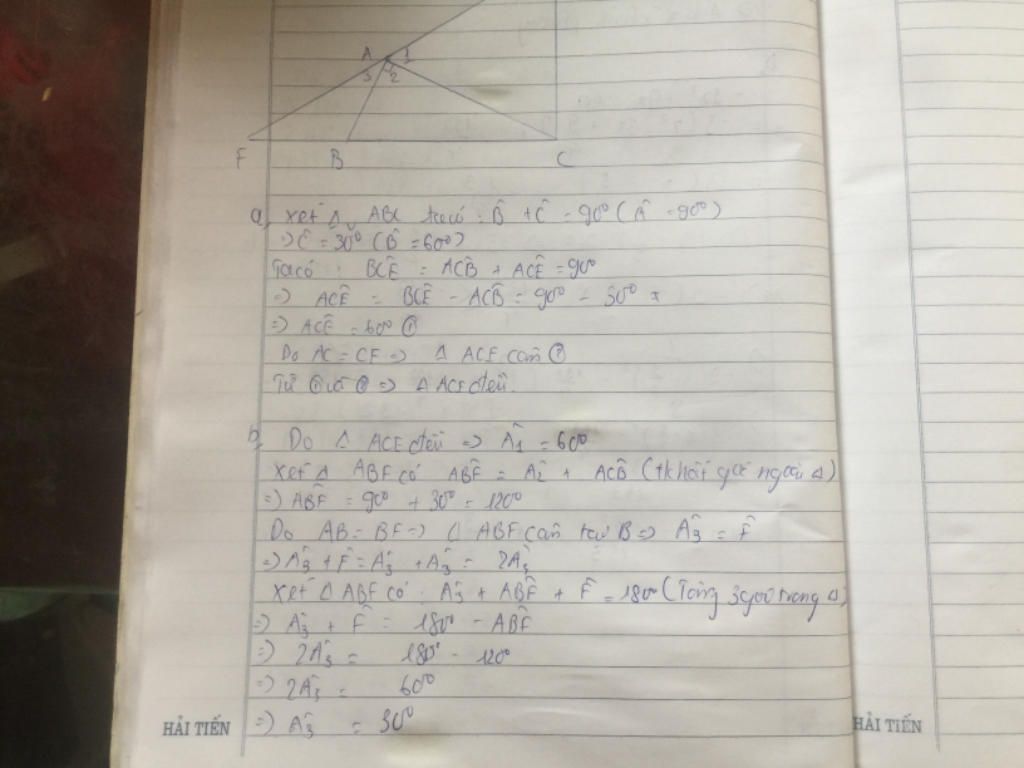 A 1
3 2
F B C
a) Xét Δ ABC ta có : B̂ + Ĉ = 90° ( Â = 90°)
=> Ĉ = 30° ( B̂ = 60°)
Ta có : BĈE = AĈB + AĈE = 90°
=> AĈE = BĈE - AĈB = 90° - 30°
=> AĈE = 60° ①
Do AC = CE => Δ ACE cân ②
Từ ① và ② => Δ ACE đều.
b) Do Δ ACE đều => Â1 = 60°
Xét Δ ABF có AB̂F = Â2 + AĈB ( góc ngoài Δ)
=> AB̂F = 90° + 30° = 120°
Do AB = BF => Δ ABF cân tại B => Â3 = F̂
=> Â3 + F̂ = Â3 + Â3 = 2Â3
Xét Δ ABF có : Â3 + AB̂F + F̂ = 180° (Tổng 3 góc trong Δ)
=> Â3 + F̂ = 180° - AB̂F
=> 2Â3 = 180° - 120°
=> 2Â3 = 60°
=> Â3 = 30°
HẢI TIẾN
HẢI TIẾN